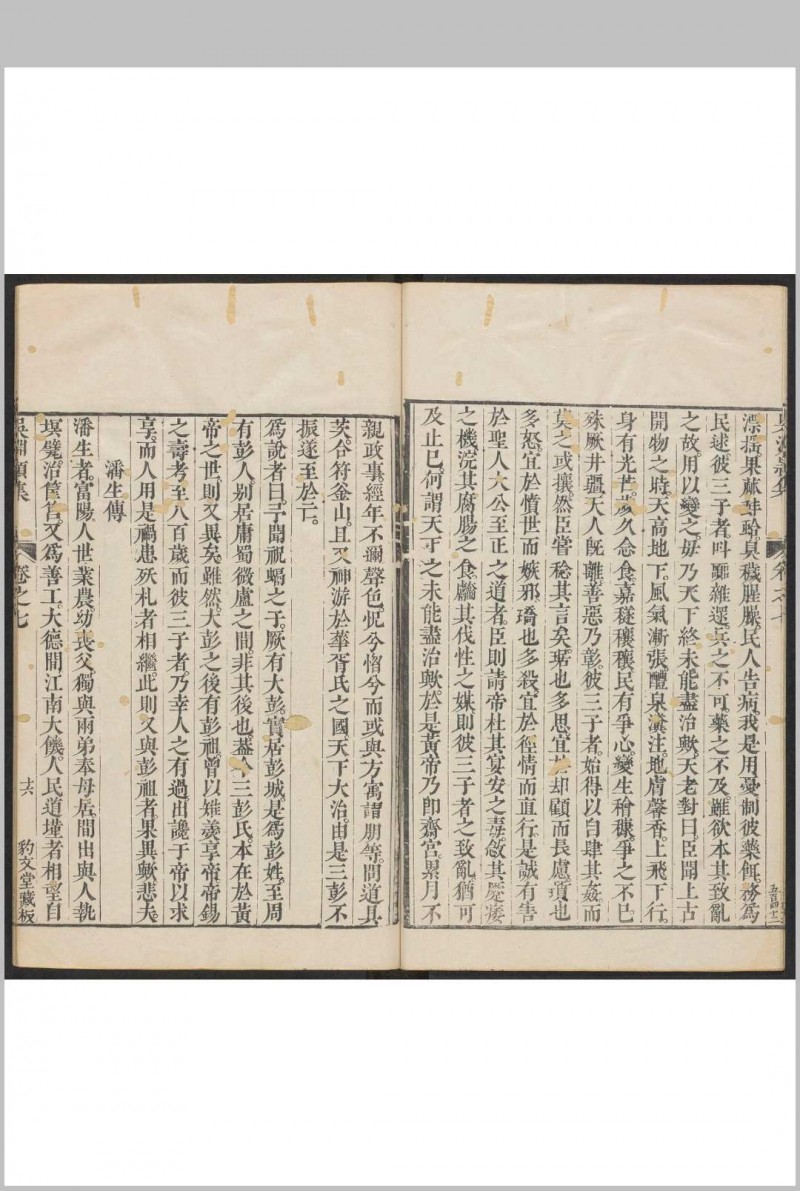 漂搖果蓏蚌蛤臭穢腥臊民人告病我是用憂制彼藥餌務爲
民逑彼三子者叫聊雜還兵之不可藥之不及難欲本其致亂
之故用以變之毋乃天下終未能盡治歟天老對曰臣聞上古
開物之時天高地下風氣漸張醴泉瀵注地膚馨香上飛下行
身有光芒歲久念食嘉穟穰穰民有爭心變生稽穅爭之不已
殊厥井疆天人旣離善惡乃彰彼三子者始得以自肆其姦而
莫之或攘然臣嘗稔其言矣琚也多思宜 却顧而長慮瓆也
多怒宜於憤世而嫉邪瑀也多殺宜於徑情而直行是誠有害
於聖人大公至正之道者臣則請帝杜其宴安之毒斂其 痿
之機浣其腐腸之食蠲其伐性之媒則彼三子者之致亂猶可
及止已何謂天下之未能盡治歟於是黃帝乃卽齋宮累月不
親政事經年不彌聲色怳兮惛兮而或與方寓謂朋等問道具
茨合符釜山且又神游於華胥氏之國天下大治由是三彭不
振遂至於亡
爲說者曰予聞祝蝠之子厥有大彭實居彭城是爲彭姓至周
有彭人別居庸蜀微盧之間非其後也蓋今三彭氏本在於黃
帝之世則又異矣雖然大彭之後有彭祖曾以雉羹享帝帝錫
之壽考至八百歲而彼三子者乃幸人之有過出讒于帝以求
享而人用是禍患殀札者相繼此則又與彭祖者果異歟悲夫
潘生傳
潘生者富陽人世業農幼喪父獨與兩弟奉母居間出與人執
埧甓治筐筥又爲善工大德間江南大饑人民道墐者相望自
吳淵穎集
卷之七
十六
豹文堂藏板